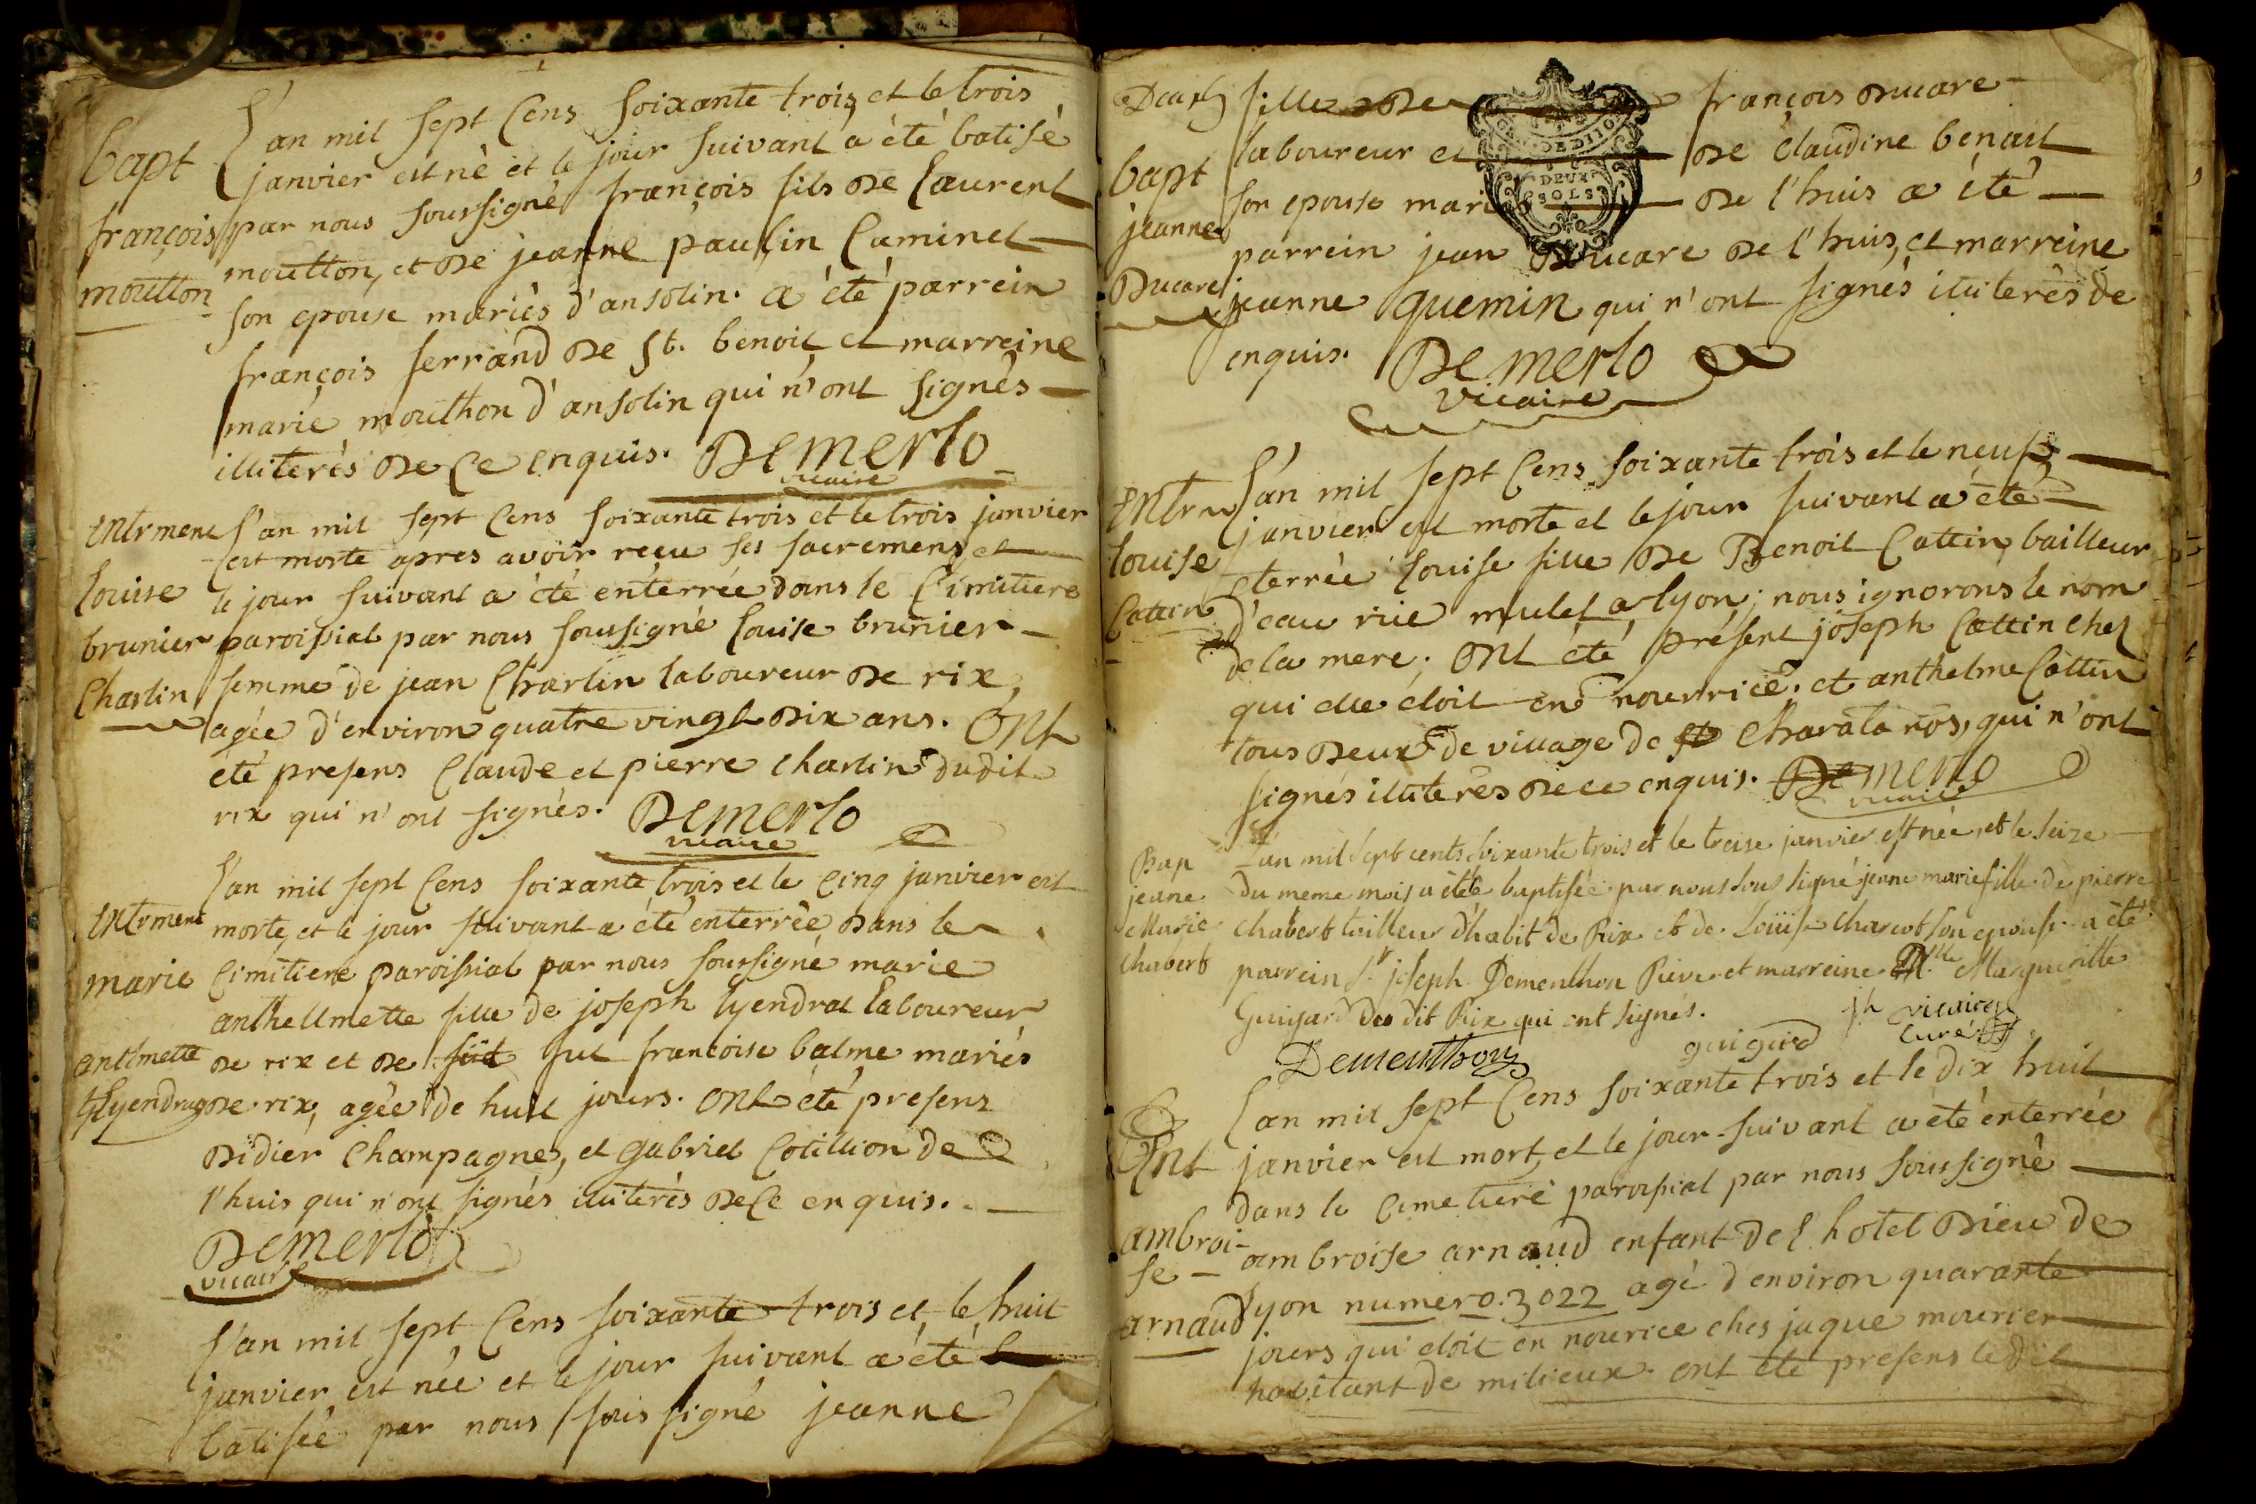 Bapt
françois
moutton
L'an mil sept Cens Soixante trois, et le trois
janvier est nè et le jour suivant a été batisé
par nous soussigné françois fils de Laurent
moutton, et de jeanne paulin Caminet
son epouse mariés d'ansolin. a été parrein
françois ferrand de St. benoit et marreine
marie moutthon d'ansolin qui n'ont signés
illiterès de Ce enquis. Demerlo
vicaire
Intrment
Louise
brunier
Charlin
L'an mil sept Cens soixante trois et le trois janvier
est morte apres avoir reçu ses sacremens et
le jour suivant a été enterrée dans le Cimitiere
paroissial par nous soussigné Louise brunier
femme de jean Charlin laboureur de rix,
agée d'environ quatre vingt dix ans. Ont
été presens Claude et pierre Charlin dudit
rix qui n'ont signés. Demerlo
vicaire
Intrment
marie
antlmette
tyendrag
L'an mil sept Cens soixante trois et le Cinq janvier est
morte, et le jour suivant a été enterrée dans le
Cimitiere paroissial par nous soussigné marie
anthellmette fille de joseph tyendrat Laboureur
de rix et de fut françoise balme mariés
de rix, agée de huit jours. Ont été presens
Didier Champagne, et Gabriel Cotillion de
l'huis qui n'ont signés illiterès de Ce enquis.
Demerlo
vicaire
L'an mil sept Cens soixante trois et le huit
janvier est née et le jour suivant a été
batisée par nous soussigné jeanne
Bapt
jeanne
Ducare
fille de françois Ducare
laboureur et de Claudine benait
son epouse mariés de l'huis a été
parrein jean Ducare de l'huis, et marreine
jeanne quemin qui n'ont signés illiterès de
enquis. Demerlo
vicaire
DEUX
SOLS
Intr
Louise
Cattin
L'an mil sept Cens soixante trois et le neuf
janvier est morte et le jour suivant a été
eterrée Louise fille de Benoit Cattin, bailleur
d'eau rüe mulet a lyon; nous ignorons le nom
de la mere; Ont été présent joseph Cattin chez
qui elle étoit en nourrice. et anthelme Cattin
tous deux de village de Charata nos, qui n'ont
signés illiterès de ce enquis. Demerlo
vicaire
Bap
jeane
Marie
Chabert
L'an mil sept cents soixante trois et le treise janvier est née, et le seize
du meme mois a été baptisée par nous sous signé jeane marie fille de pierre
chabert tailleur d'habit de Rix et de Loüise charcot son epouse. a été
parrein Sr joseph Dementhon Pieve et marreine Dlle Marguerite
Guigard du dit Rix qui ont signés.
Dementhon
guigard
vicaire
Curé
Ent
ambroi-
se
arnaud
L'an mil sept Cens soixante trois et le dix huit
janvier est mort, et le jour suivant a été enterrée
dans le Cimetiere paroissial par nous soussigné
ambroise arnaud enfant de l'hotel Dieu de
lyon numero. 3022 agé d'environ quarante
jours qui etoit en nourice ches jaque mourier
habitant de milieux. ont été presens le dit